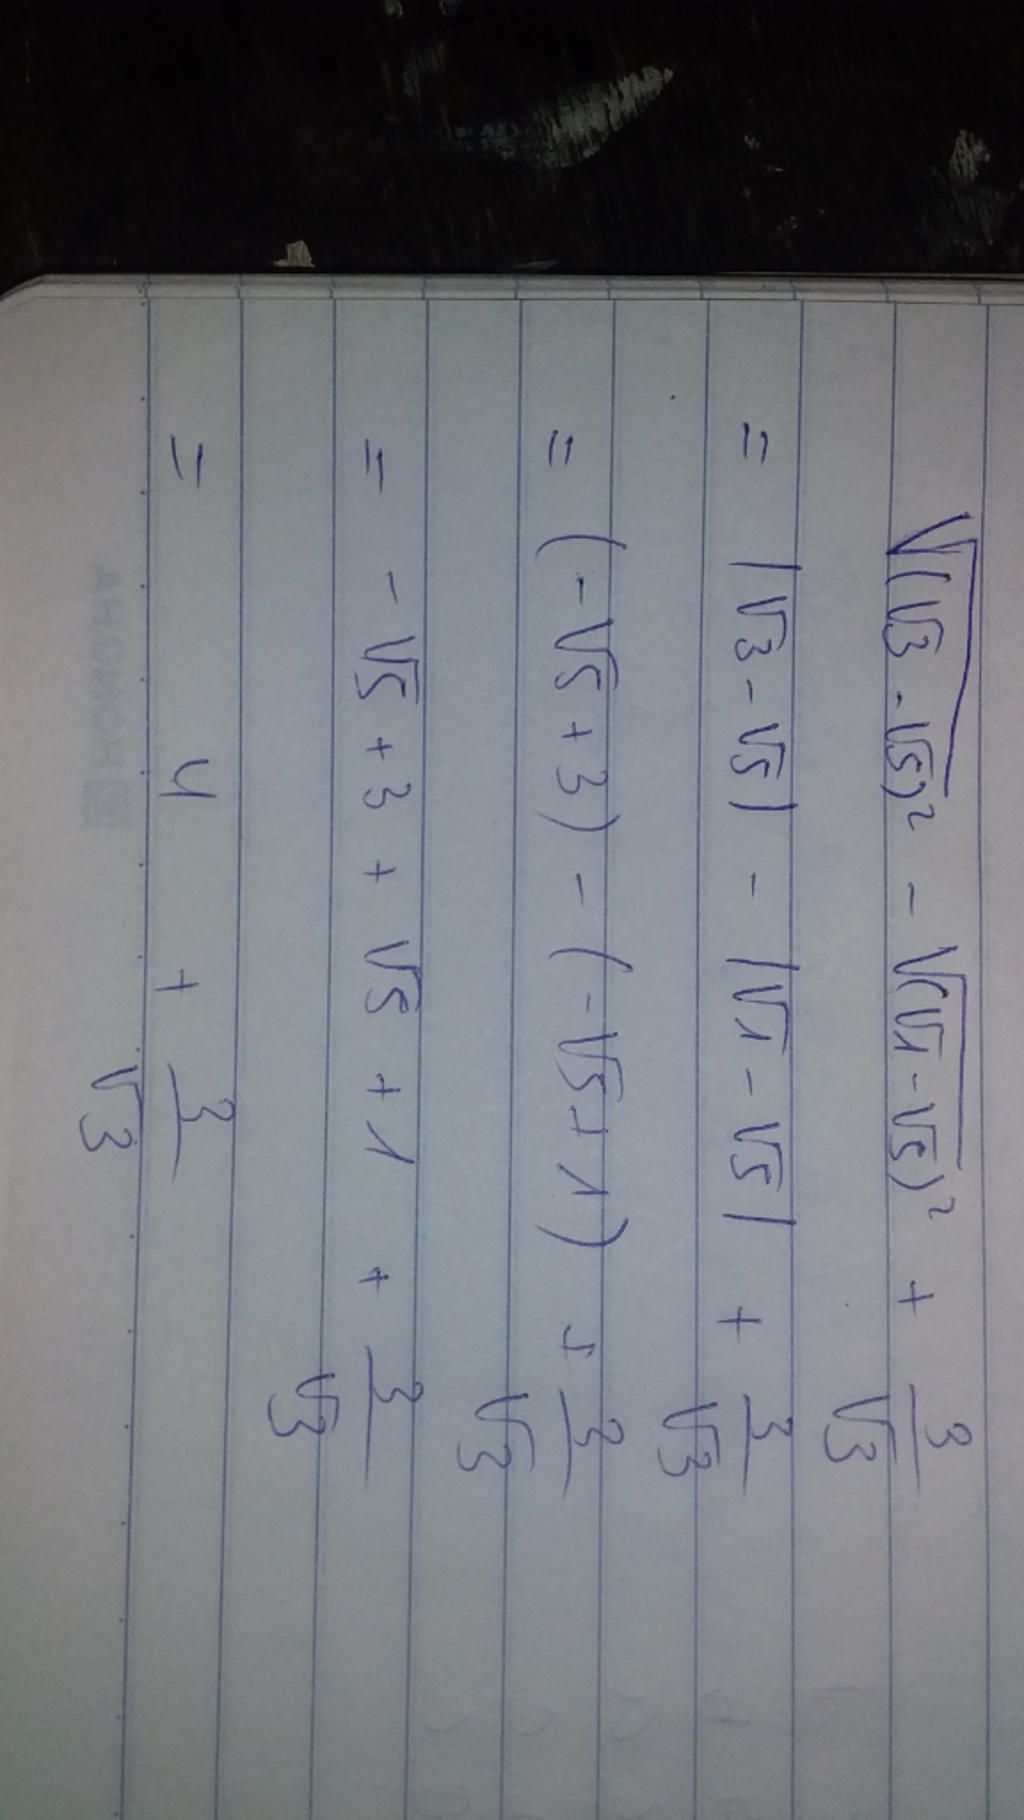 √(√3 - √5)² - √(√1 - √5)² + 3/√3
= |√3 - √5| - |√1 - √5| + 3/√3
= (-√5 + 3) - (-√5 + 1) + 3/√3
= -√5 + 3 + √5 + 1 + 3/√3
= 4 + 3/√3